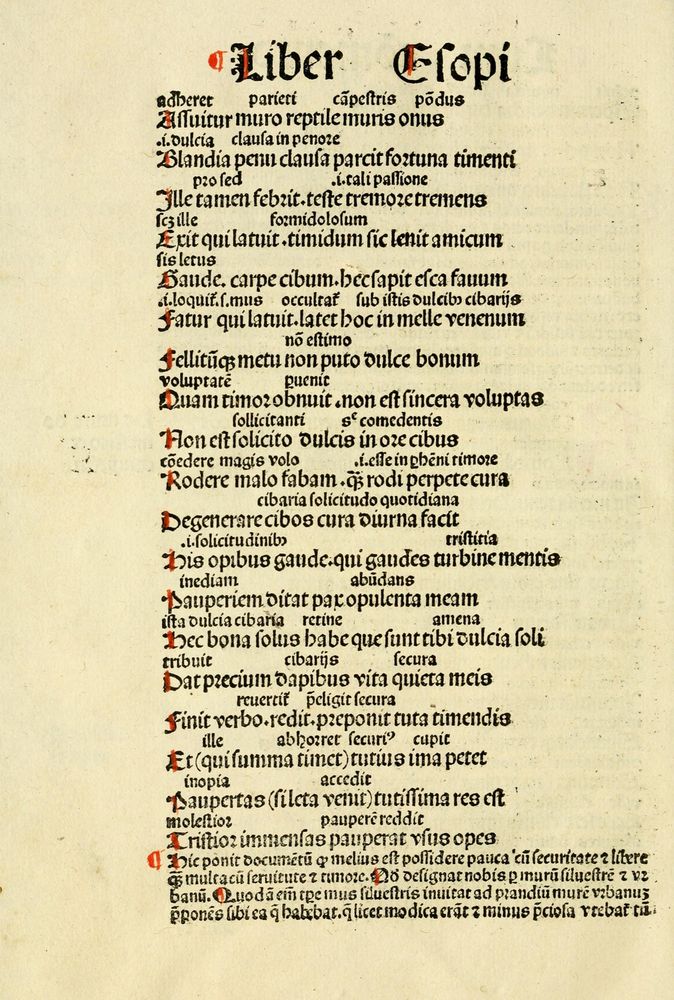 ¶ Liber Esopi
adheret parieti cãpestris põdus
Assuitur muro reptile muris onus
.i. dulcia clausa in penore
Blandia penu clausa parcit fortuna timenti
pro sed .i. tali passione
Ille tamen febrit. teste tremore tremens
scz ille formidolosum
Exit qui latuit. timidum sic lenit amicum
sis letus
Gaude. carpe cibum. hec sapit esca fauum
.i. loquit̃. s. mus occultat̃ sub istis dulcibꝫ cibarijs
Fatur qui latuit. latet hoc in melle venenum
nõ estimo
Fellitũqꝫ metu non puto dulce bonum
voluptatẽ ꝑuenit
Quam timor obnuit. non est sincera voluptas
sollicitanti sᶜ comedentis
Non est solicito dulcis in ore cibus
cõedere magis volo .i. esse in ꝓhẽni timore
Rodere malo fabam. qꝫ̃ rodi perpete cura
cibaria solicitudo quotidiana
Degenerare cibos cura diurna facit
.i. solicitudinibꝫ tristitia
His opibus gaude. qui gaudes turbine mentis
inediam abũdans
Pauperiem ditat pax opulenta meam
ista dulcia cibaria retine amena
Hec bona solus habe que sunt tibi dulcia soli
tribuit cibarijs secura
Dat precium dapibus vita quieta meis
reuertit̃ p̃eligit secura
Finit verbo. redit. preponit tuta timendis
ille abhorret securiꝰ cupit
Et (qui summa timet) tutius ima petet
inopia accedit
Paupertas (si leta venit) tutissima res est
molestior pauperẽ reddit
Tristior immensas pauperat vsus opes
¶ Hic ponit documẽtũ ꝙ melius est possidere pauca cũ securitate ⁊ libere
qꝫ̃ multa cũ seruitute ⁊ timore. Qõ designat nobis ꝑ murũ siluestrẽ ⁊ vr
banũ. Quodã em̃ tꝑe mus siluestris inuitat ad prandiũ murẽ vrbanuꝫ
p̃ponẽs sibi ea q̃ habebat. q̃ licet modica erãt ⁊ minus p̃ciosa vtebat̃ tñ.